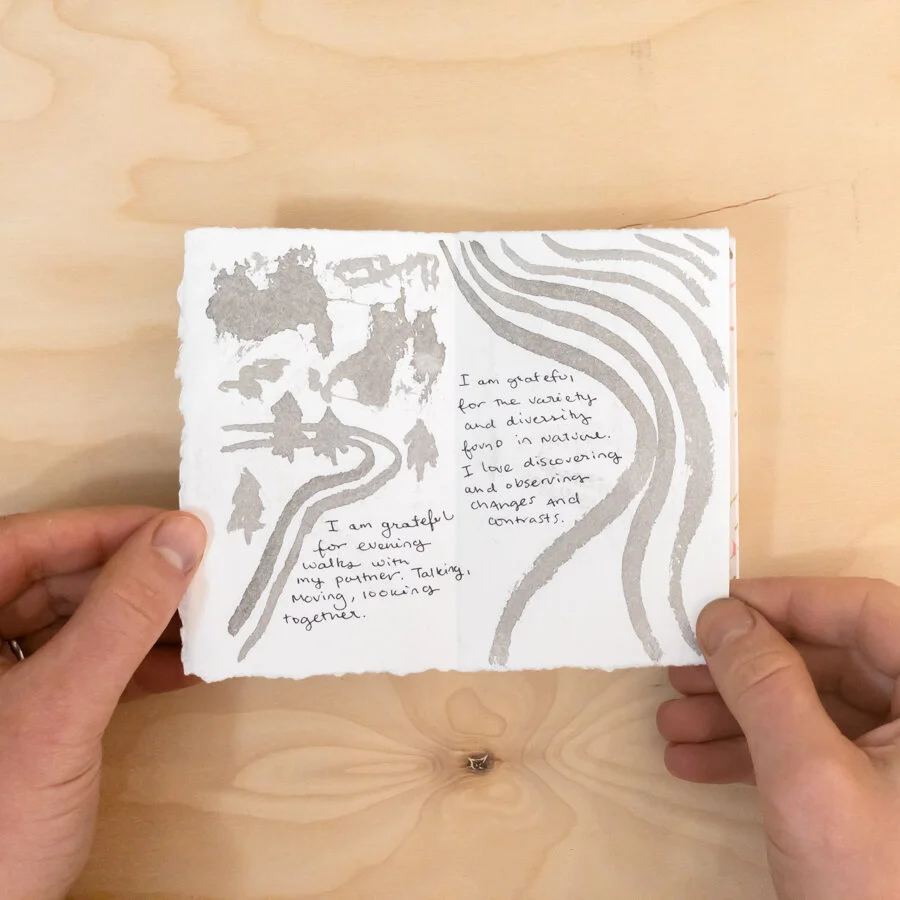 I am grateful
for evening
walks with
my partner. Talking,
Moving, looking
together.
I am grateful
for the variety
and diversity
found in nature.
I love discovering
and observing
changes and
contrasts.